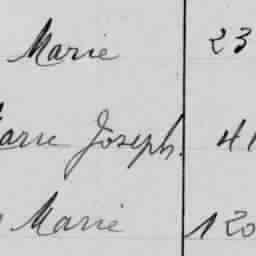 Marie 23
Marie Joseph. 41
Marie 120